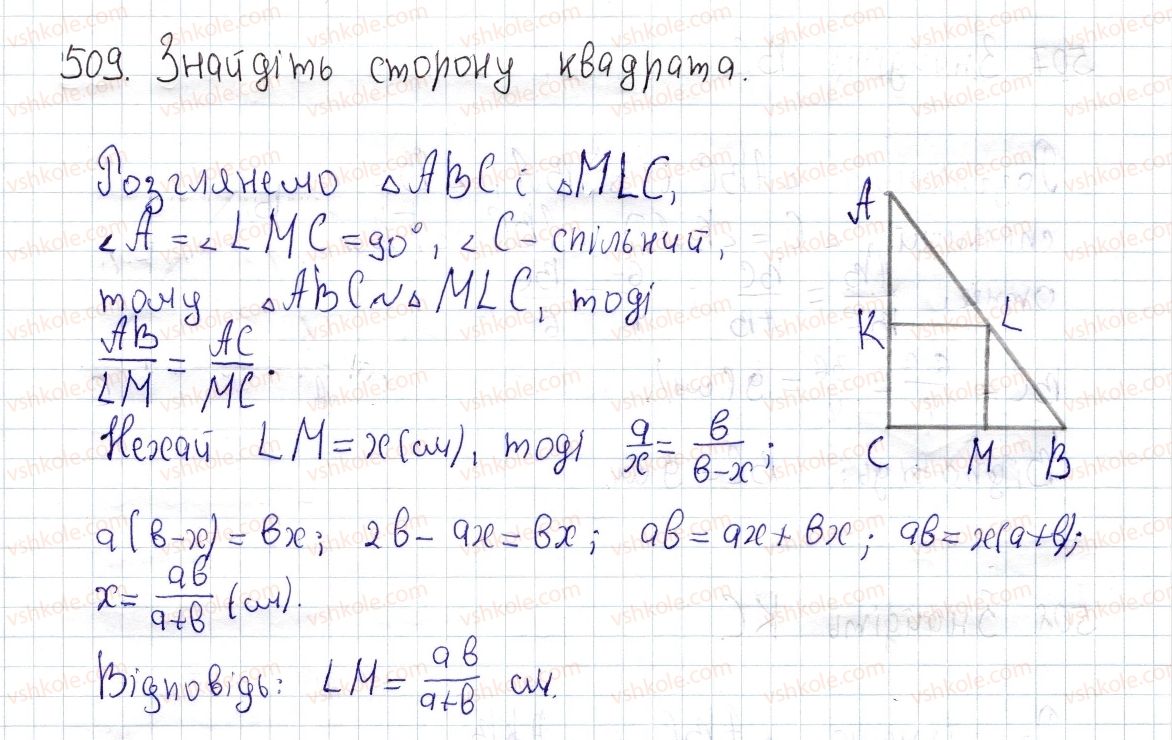 509. Знайдіть сторону квадрата.
Розглянемо △ABC і △MLC,
∠A = ∠LMC = 90°, ∠C - спільний,
тому △ABC ~ △MLC, тоді
AB/LM = AC/MC.
Нехай LM = x (см), тоді a/x = в/(в-x);
a(в-x) = вx; 2в - ax = вx; aв = ax + вx; aв = x(a+в);
x = aв/(a+в) (см).
Відповідь: LM = aв/(a+в) см.
A
K L
C M B